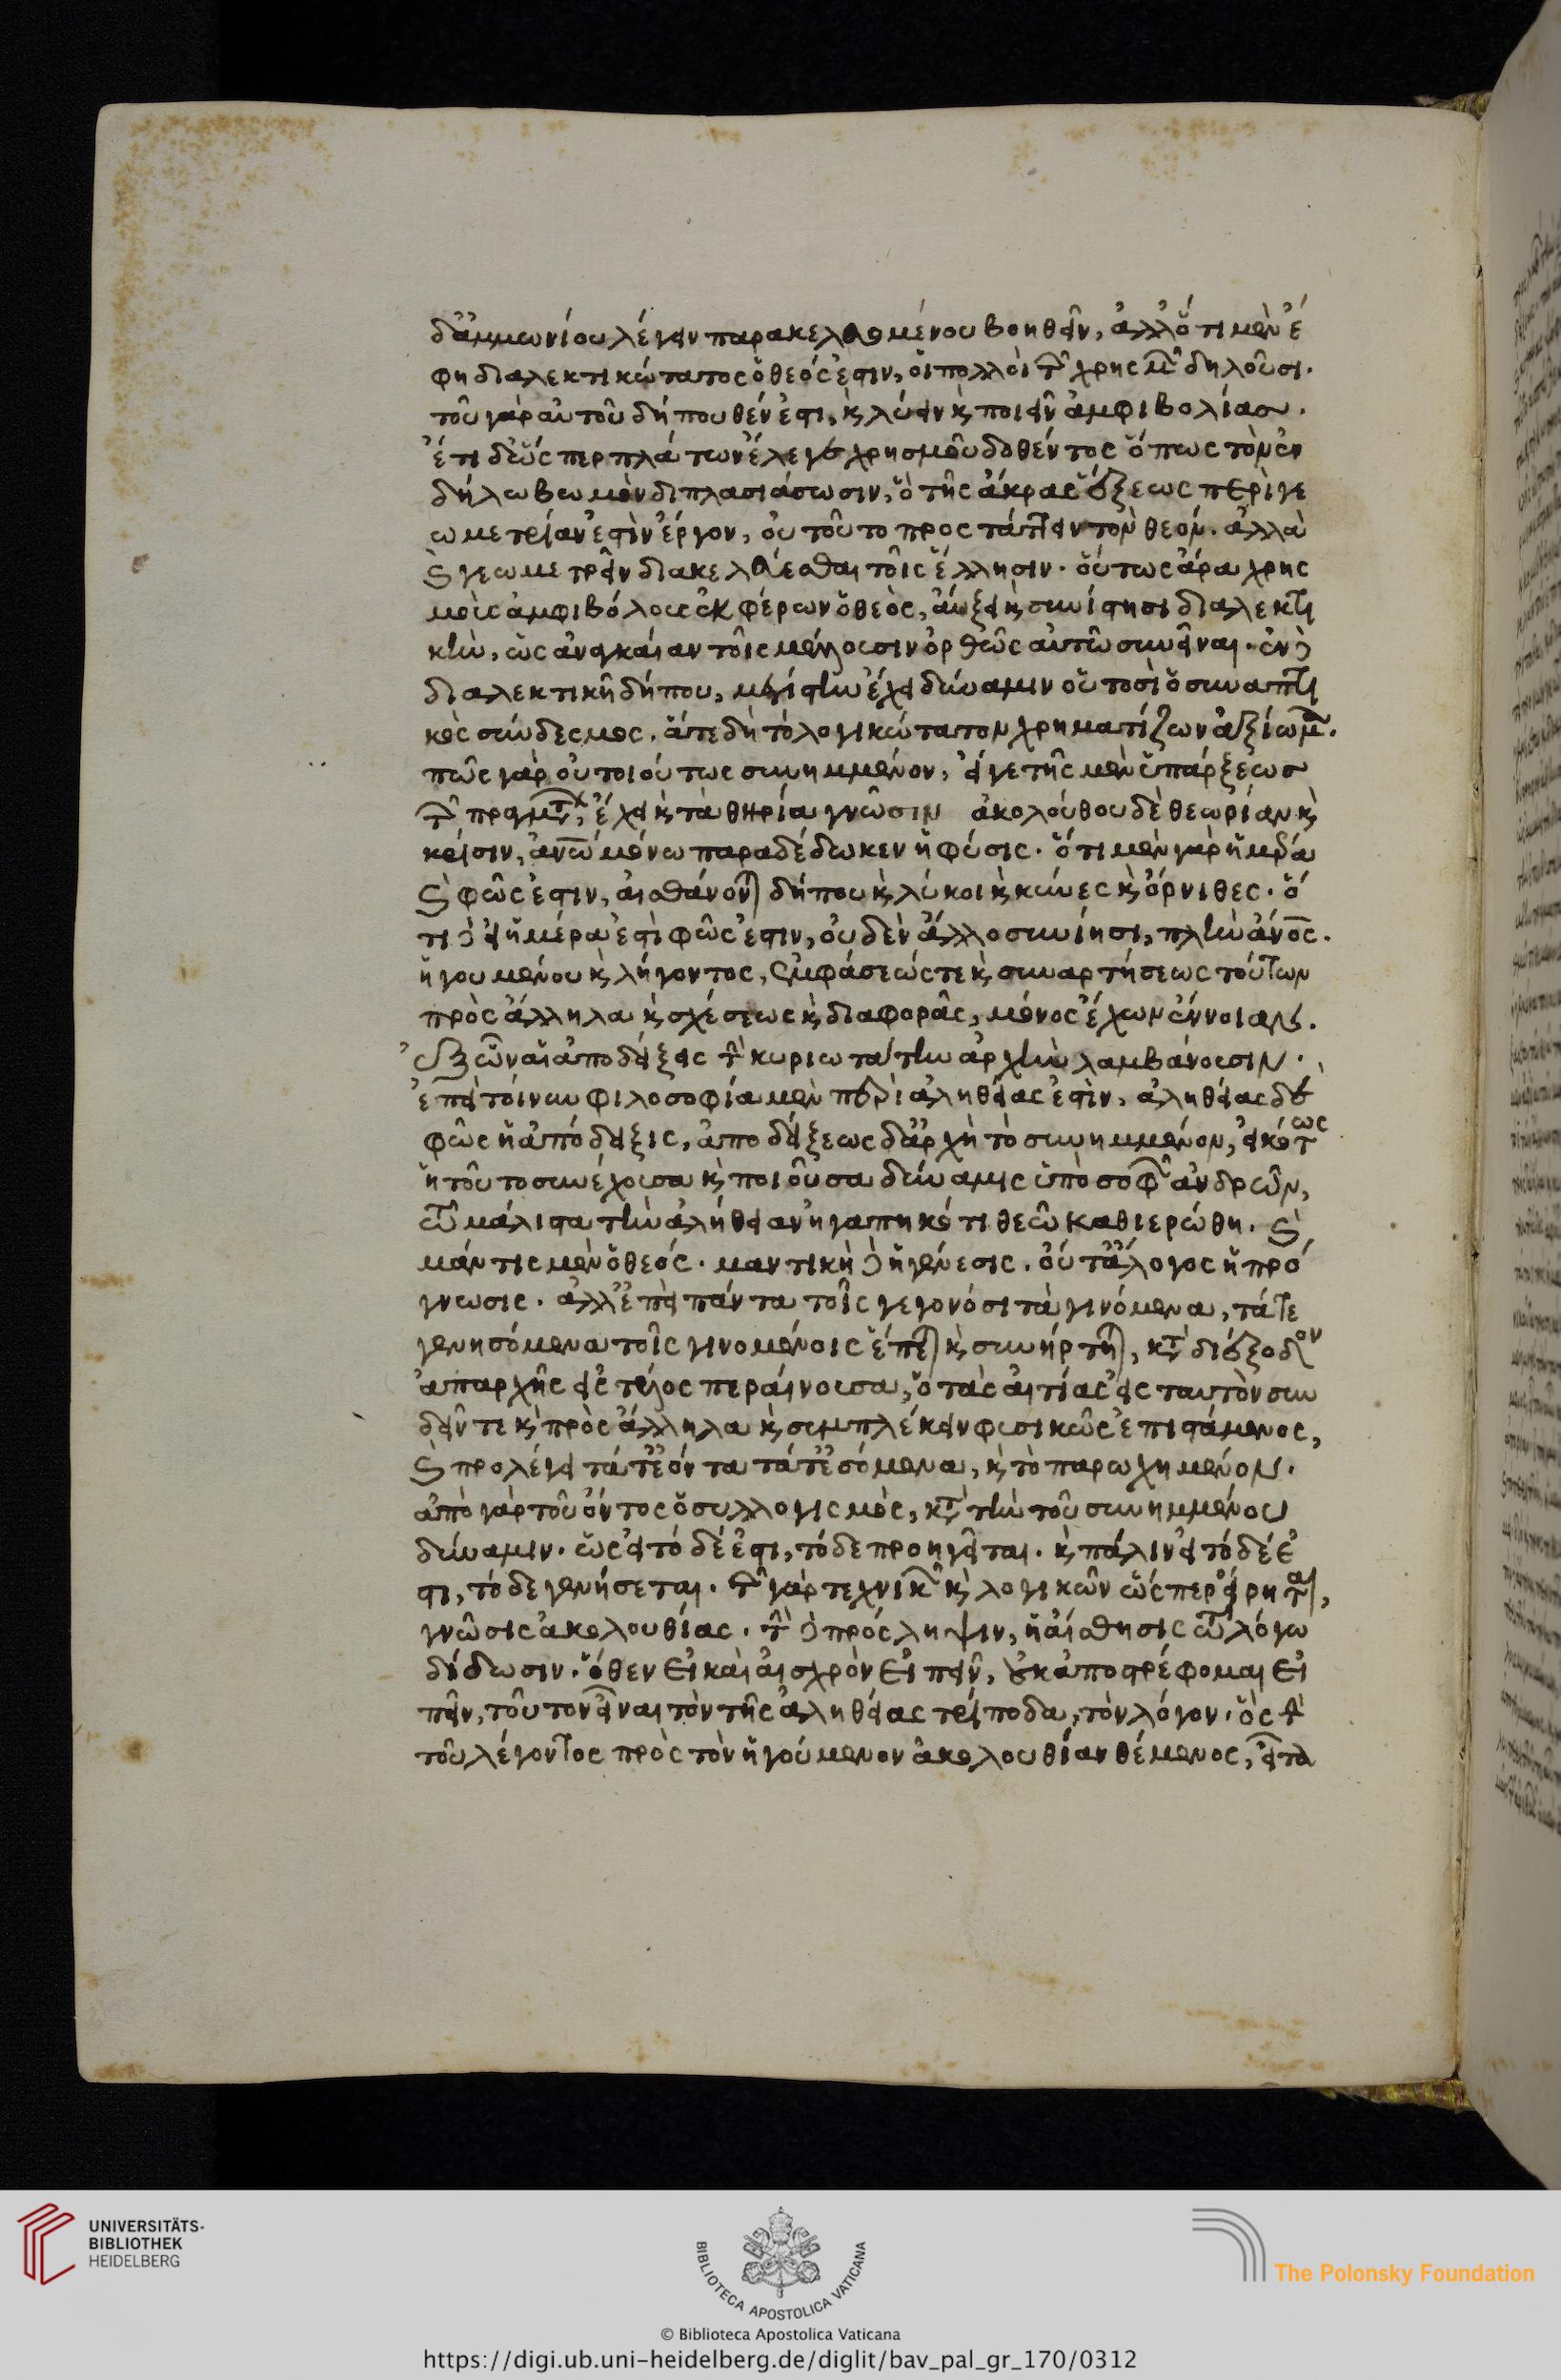 δ' ἀμμωνίου λέγειν παρακελευομένου βοηθεῖν, ἀλλ' ὅτι μὲν ἔ
φη διαλεκτικώτατος ὁ θεός ἐστιν, οἱ πολλοὶ τῶν χρησμῶν δηλοῦσι.
τοῦ γὰρ αὐτοῦ δήπουθέν ἐστι, καὶ λύειν καὶ ποιεῖν ἀμφιβολίας.
ἔτι δ' ὥσπερ πλάτων ἔλεγε χρησμοῦ δοθέντος ὅπως τὸν ἐν
δήλω βωμὸν διπλασιάσωσιν, ὃ τῆς ἄκρας ἕξεως περὶ γε
ωμετρίαν ἐστὶν ἔργον, οὐ τοῦτο προςτάττειν τὸν θεόν. ἀλλὰ
καὶ γεωμετρεῖν διακελεύεσθαι τοῖς ἕλλησιν. οὕτως ἄρα χρης
μοὺς ἀμφιβόλους ἐκφέρων ὁ θεὸς, αὔξει καὶ συνίστησι διαλεκτι
κὴν, ὡς ἀναγκαίαν τοῖς μέλλουσιν ὀρθῶς αὐτῶ συνεῖναι. ἐν δὲ
διαλεκτικῆ δήπου, μεγίστην ἔχει δύναμιν οὑτοσὶ ὁ συναπτι
κὸς σύνδεσμος. ἅτε δὴ τὸ λογικώτατον χρηματίζων ἀξίωμα.
πῶς γὰρ οὐ τοιούτως συνημμένον, εἴγε τῆς μὲν ὑπάρξεως
τῶν πραγμάτων, ἔχει καὶ τὰ θηρία γνῶσιν ἀκολούθου δὲ θεωρίαν καὶ
κρίσιν, ἀνω μόνω παραδέδωκεν ἡ φύσις. ὅτι μὲν γὰρ ἡμέρα
καὶ φῶς ἐστιν, αἰσθάνονται δήπου καὶ λύκοι καὶ κύνες καὶ ὄρνιθες. ὅ
τι δὲ εἰ ἡμέρα ἐστὶ φῶς ἐστιν, οὐδὲν ἄλλο συνίησι, πλὴν ἀνος.
ἡγουμένου καὶ λήγοντος, ἐμφάσεώς τε καὶ συναρτήσεως τούτων
πρὸς ἄλληλα καὶ σχέσεως καὶ διαφορᾶς, μόνος ἔχων ἔννοιαν.
ἐξ ὧν αἱ ἀποδείξεις τὴν κυριωτάτην ἀρχὴν λαμβάνουσιν.
ἐπεὶ τοίνυν φιλοσοφία μὲν περὶ ἀληθείας ἐστὶν, ἀληθείας δὲ
φῶς ἡ ἀπόδειξις, ἀποδείξεως δ' ἀρχὴ τὸ συνημμένον, εἰκότως
ἡ τοῦτο συνέχουσα καὶ ποιοῦσα δύναμις ὑπὸ σοφῶν ἀνδρῶν,
τῶ μάλιστα τὴν ἀλήθειαν ἠγαπηκότι θεῶ καθιερώθη. καὶ
μάντις μὲν ὁ θεός. μαντικὴ δὲ ἡ γένεσις. οὔτ' ἄλογος ἡ πρό
γνωσις. ἀλλ' ἐπεὶ πάντα τοῖς γεγονόσι τὰ γινόμενα, τά τε
γενησόμενα τοῖς γινομένοις ἕπεται καὶ συνήρτηται, κατὰ διέξοδον
ἀπαρχῆς εἰς τέλος περαίνουσα, ὁ τὰς αἰτίας εἰς ταυτὸν συν
δεῖν τε καὶ πρὸς ἄλληλα καὶ συμπλέκειν φυσικῶς ἐπιστάμενος,
καὶ προλέγει τά τ' ἐόντα τά τ' ἐσόμενα, καὶ τὸ παρωχημένον.
ἀπὸ γὰρ τοῦ ὄντος ὁ συλλογισμὸς, κατὰ τὴν τοῦ συνημμένου
δύναμιν. ὡς εἰ τόδέ ἐστι, τόδε προηγεῖται. καὶ πάλιν εἰ τόδέ ἐ
στι, τόδε γενήσεται. τῶν γὰρ τεχνικῶν καὶ λογικῶν ὥσπερ εἴρηται,
γνῶσις ἀκολουθίας. τὴν δὲ πρόςληψιν, ἡ αἴσθησις τῶ λόγω
δίδωσιν. ὅθεν εἰ καὶ αἰσχρὸν εἰπεῖν, οὐκ ἀποστρέφομαι εἰ
πεῖν, τοῦτον εἶναι τὸν τῆς ἀληθείας τρίποδα, τὸν λόγον, ὃς τὴν
τοῦ λέγοντος πρὸς τὸν ἡγούμενον ἀκολουθίαν θέμενος, εἶτα
UNIVERSITÄTS-
BIBLIOTHEK
HEIDELBERG
BIBLIOTECA APOSTOLICA VATICANA
The Polonsky Foundation
© Biblioteca Apostolica Vaticana
https://digi.ub.uni-heidelberg.de/diglit/bav_pal_gr_170/0312